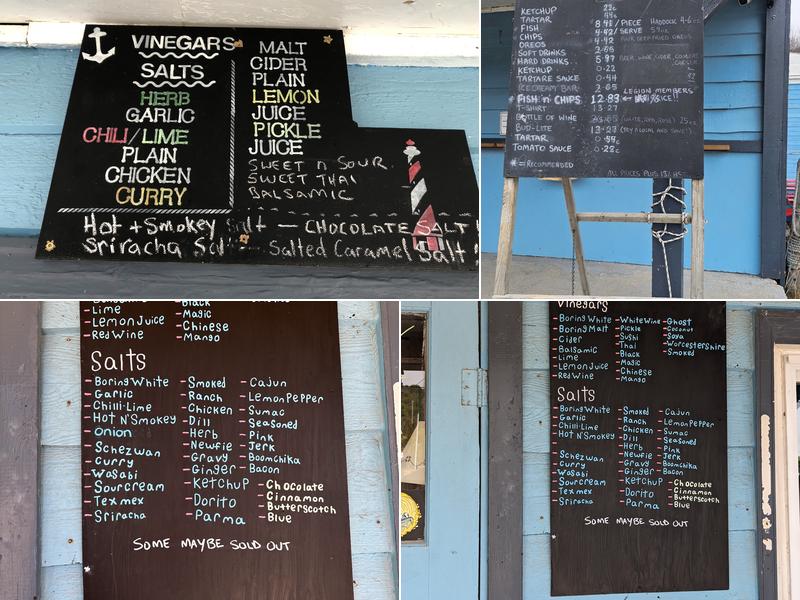 VINEGARS
SALTS
HERB
GARLIC
CHILI/LIME
PLAIN
CHICKEN
CURRY
MALT
CIDER
PLAIN
LEMON
JUICE
PICKLE
JUICE
SWEET n SOUR
SWEET THAI
BALSAMIC
Hot + Smokey Salt — CHOCOLATE SALT
Sriracha Sal — Salted Caramel Salt
KETCHUP 22¢
TARTAR 44¢
FISH 8.41/PIECE HADDOCK 4-6oz
CHIPS 4.42/SERVE
OREOS 4.42
SOFT DRINKS 2.65
HARD DRINKS 5.97
KETCHUP 0.22
TARTARE SAUCE 0.44
ICE CREAM BAR 2.65 LEGION MEMBERS
*FISH 'n' CHIPS 12.83
T-SHIRT 13.27
BOTTLE OF WINE
BUD-LITE 13.27 (TRY A LOCAL AND SAVE!)
TARTAR
TOMATO SAUCE 0.22¢
*=RECOMMENDED
ALL PRICES PLUS 15% HST
-Lime
-Lemon Juice
-Red Wine
-Black
-Magic
-Chinese
-Mango
Salts
-Boring White
-Garlic
-Chilli-Lime
-Hot N' Smokey
-Onion
-Schezwan
-Curry
-Wasabi
-Sour cream
-Tex mex
-Sriracha
-Smoked
-Ranch
-Chicken
-Dill
-Herb
-Newfie
-Gravy
-Ginger
-Ketchup
-Dorito
-Parma
-Cajun
-Lemon Pepper
-Sumac
-Seasoned
-Pink
-Jerk
-Boomchika
-Bacon
-Chocolate
-Cinnamon
-Butterscotch
-Blue
SOME MAYBE SOLD OUT
Vinegars
-Boring White
-Boring Malt
-Cider
-Balsamic
-Lime
-Lemon Juice
-Red Wine
-White Wine
-Pickle
-Sushi
-Thai
-Black
-Magic
-Chinese
-Mango
-Ghost
-Coconut
-Soya
-Worcestershire
-Smoked
Salts
-Boring White
-Garlic
-Chilli-Lime
-Hot N' Smokey
-Schezwan
-Curry
-Wasabi
-Sour cream
-Tex mex
-Sriracha
-Smoked
-Ranch
-Chicken
-Dill
-Herb
-Newfie
-Gravy
-Ginger
-Ketchup
-Dorito
-Parma
-Cajun
-Lemon Pepper
-Sumac
-Seasoned
-Pink
-Jerk
-Boomchika
-Bacon
-Chocolate
-Cinnamon
-Butterscotch
-Blue
SOME MAYBE SOLD OUT